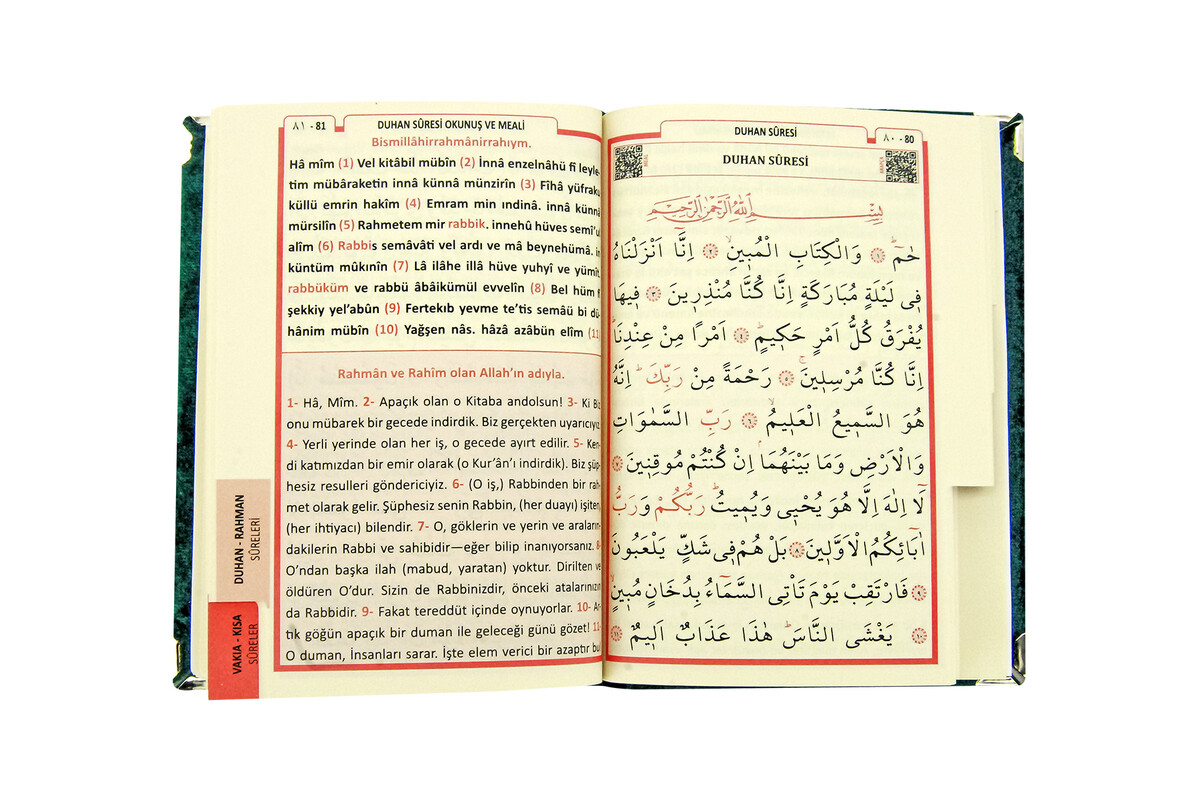 ٨١ - 81
DUHAN SÛRESİ OKUNUŞ VE MEALİ
Bismillâhirrahmânirrahıym.
Hâ mîm (1) Vel kitâbil mübîn (2) İnnâ enzelnâhü fî leyle-
tim mübâraketin innâ künnâ münzirîn (3) Fîhâ yüfraku
küllü emrin hakîm (4) Emram min ındinâ. innâ künnâ
mürsilîn (5) Rahmetem mir rabbik. innehû hüves semî'ul
alîm (6) Rabbis semâvâti vel ardı ve mâ beynehümâ. in
küntüm mûkınîn (7) Lâ ilâhe illâ hüve yuhyî ve yümît.
rabbüküm ve rabbü âbâikümül evvelîn (8) Bel hüm fî
şekkiy yel'abûn (9) Fertekıb yevme te'tis semâü bi dü-
hânim mübîn (10) Yağşen nâs. hâzâ azâbün elîm (11)
Rahmân ve Rahîm olan Allah'ın adıyla.
1- Hâ, Mîm. 2- Apaçık olan o Kitaba andolsun! 3- Ki Biz
onu mübarek bir gecede indirdik. Biz gerçekten uyarıcıyız.
4- Yerli yerinde olan her iş, o gecede ayırt edilir. 5- Ken-
di katımızdan bir emir olarak (o Kur'ân'ı indirdik). Biz şüp-
hesiz resulleri göndericiyiz. 6- (O iş,) Rabbinden bir rah-
met olarak gelir. Şüphesiz senin Rabbin, (her duayı) işiten,
(her ihtiyacı) bilendir. 7- O, göklerin ve yerin ve araların-
dakilerin Rabbi ve sahibidir—eğer bilip inanıyorsanız. 8-
O'ndan başka ilah (mabud, yaratan) yoktur. Dirilten ve
öldüren O'dur. Sizin de Rabbinizdir, önceki atalarınızın
da Rabbidir. 9- Fakat tereddüt içinde oynuyorlar. 10- Ar-
tık göğün apaçık bir duman ile geleceği günü gözet! 11-
O duman, İnsanları sarar. İşte elem verici bir azaptır bu
DUHAN - RAHMAN
SÛRELERİ
VAKIA - KISA
SÛRELER
DUHAN SÛRESİ
٨٠ - 80
DUHAN SÛRESİ
بِسْمِ اللهِ الرَّحْمٰنِ الرَّحِيمِ
حٰمٓ ۚ ﴿١﴾ وَالْكِتَابِ الْمُبٖينِ ۙ ﴿٢﴾ اِنَّٓا اَنْزَلْنَاهُ
فٖى لَيْلَةٍ مُبَارَكَةٍ اِنَّا كُنَّا مُنْذِرٖينَ ﴿٣﴾ فٖيهَا
يُفْرَقُ كُلُّ اَمْرٍ حَكٖيمٍ ۙ ﴿٤﴾ اَمْرًا مِنْ عِنْدِنَا ۜ
اِنَّا كُنَّا مُرْسِلٖينَ ۚ ﴿٥﴾ رَحْمَةً مِنْ رَبِّكَ ۜ اِنَّهُ
هُوَ السَّمٖيعُ الْعَلٖيمُ ۙ ﴿٦﴾ رَبِّ السَّمٰوَاتِ
وَالْاَرْضِ وَمَا بَيْنَهُمَا ۢ اِنْ كُنْتُمْ مُوقِنٖينَ ﴿٧﴾
لَٓا اِلٰهَ اِلَّا هُوَ يُحْيٖى وَيُمٖيتُ ۜ رَبُّكُمْ وَرَبُّ
اٰبَٓائِكُمُ الْاَوَّلٖينَ ﴿٨﴾ بَلْ هُمْ فٖى شَكٍّ يَلْعَبُونَ
﴿٩﴾ فَارْتَقِبْ يَوْمَ تَاْتِى السَّمَٓاءُ بِدُخَانٍ مُبٖينٍ ۙ
﴿١٠﴾ يَغْشَى النَّاسَ ۜ هٰذَا عَذَابٌ اَلٖيمٌ ﴿١١﴾